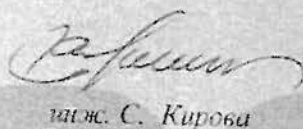 инж. С. Кирова